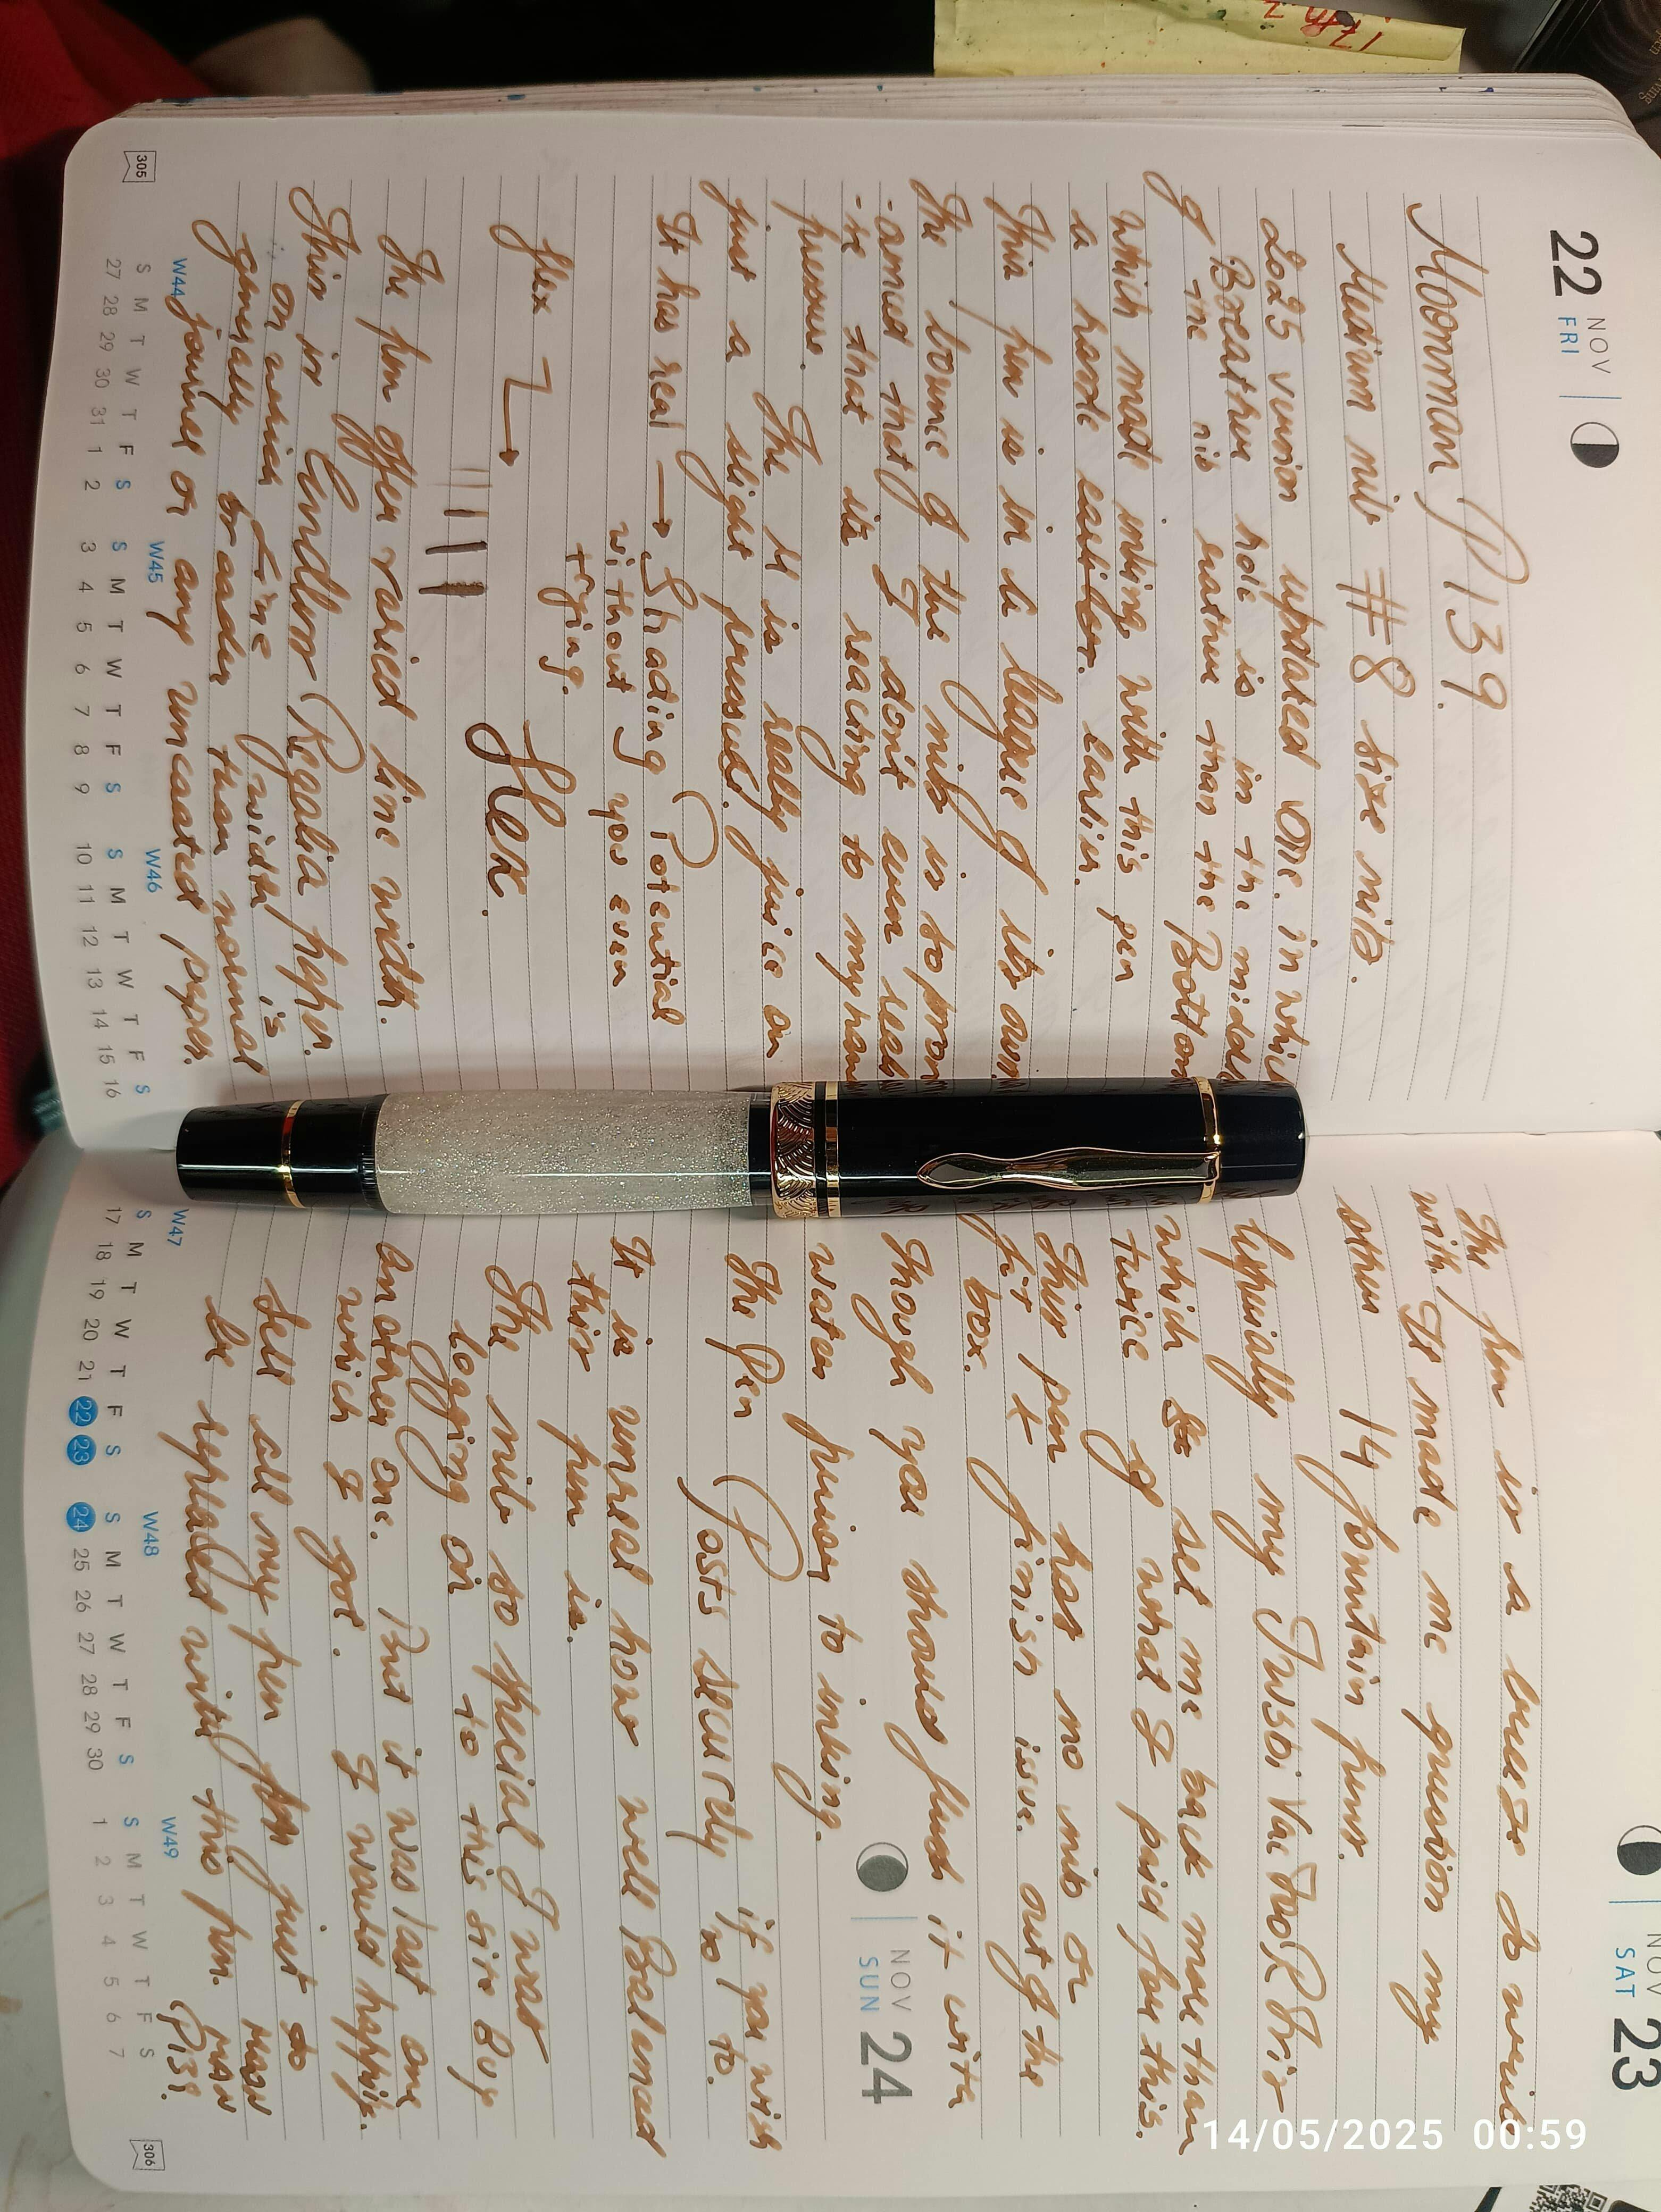 17th
22 NOV FRI
Moonman P139.
Medium nib #8 size nib.
2025 version updated one. in which
Breather hole is in the middle
of the nib rather than the Bottom
which made inking with this pen
a hassle earlier.
This pen is in a league of its own
The bounce of the nib is so pron
-ounced that I don't even need
-se that its reacting to my han
pressure. The M is really juice on
just a slight pressure.
It has real → Shading Potential
without you even
trying.
flex → Flex.
The pen offer varied line width.
This is Endless Regalia paper.
on which Line width is
generally broader than normal
journal or any uncoated paper.
W44 W45 W46
S M T W T F S S M T W T F S S M T W T F S
27 28 29 30 31 1 2 3 4 5 6 7 8 9 10 11 12 13 14 15 16
305
NOV SAT 23
The pen is a breeze to write
with. It made me question my
other 14 fountain pens.
Especially my TWSBI Vac 700R Iris
which set me back more than
twice of what I paid for this.
This pen has no nib or
fit & finish issue. out of the
box.
Though you should flush it with
water prior to inking.
NOV SUN 24
The Pen Posts securely if you wish
to.
It is unreal how well Balanced
this pen is.
The nib so special I was
logging on to this site Buy
another one. But it was last one
which I got. I would happily
sell all my pen just to
be replaced with this pen. MOONMAN P139.
W47 W48 W49
S M T W T F S S M T W T F S S M T W T F S
17 18 19 20 21 22 23 24 25 26 27 28 29 30 1 2 3 4 5 6 7
306
14/05/2025 00:59